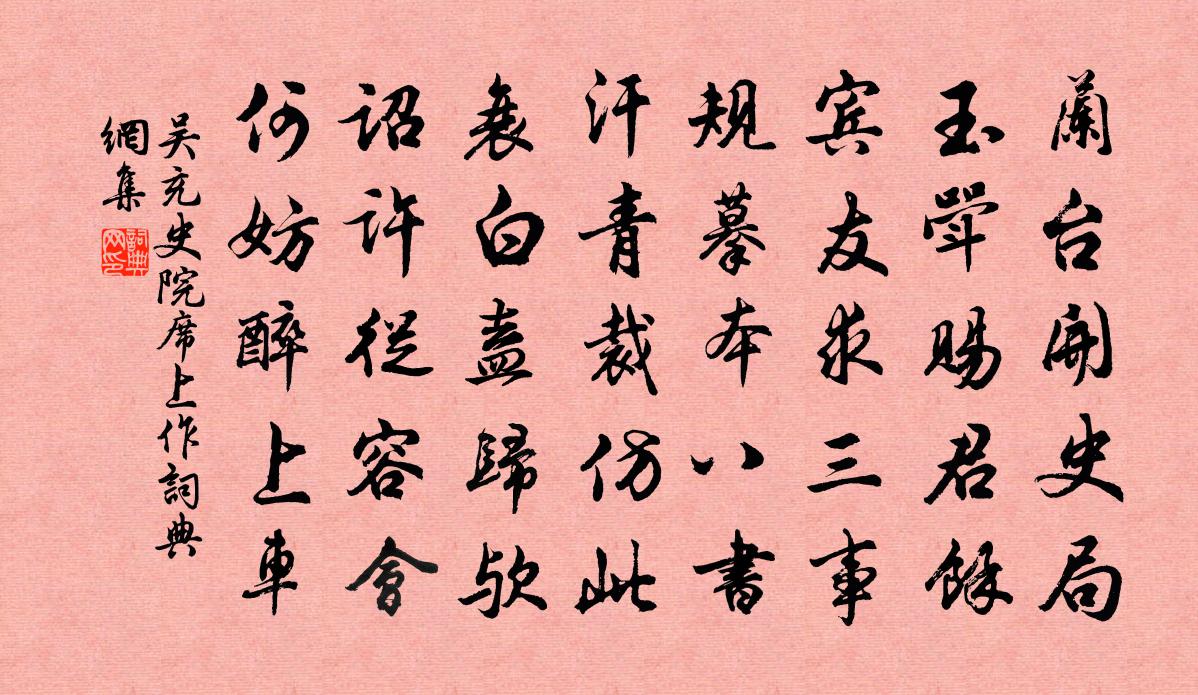 蘭台開史局
玉斝賜君餘
宾友求三事
規摹本八書
汗青裁仿此
衰白盍歸欤
詔許從容會
何妨醉上車
吴充史院席上作詞典
網集
詞典
网印